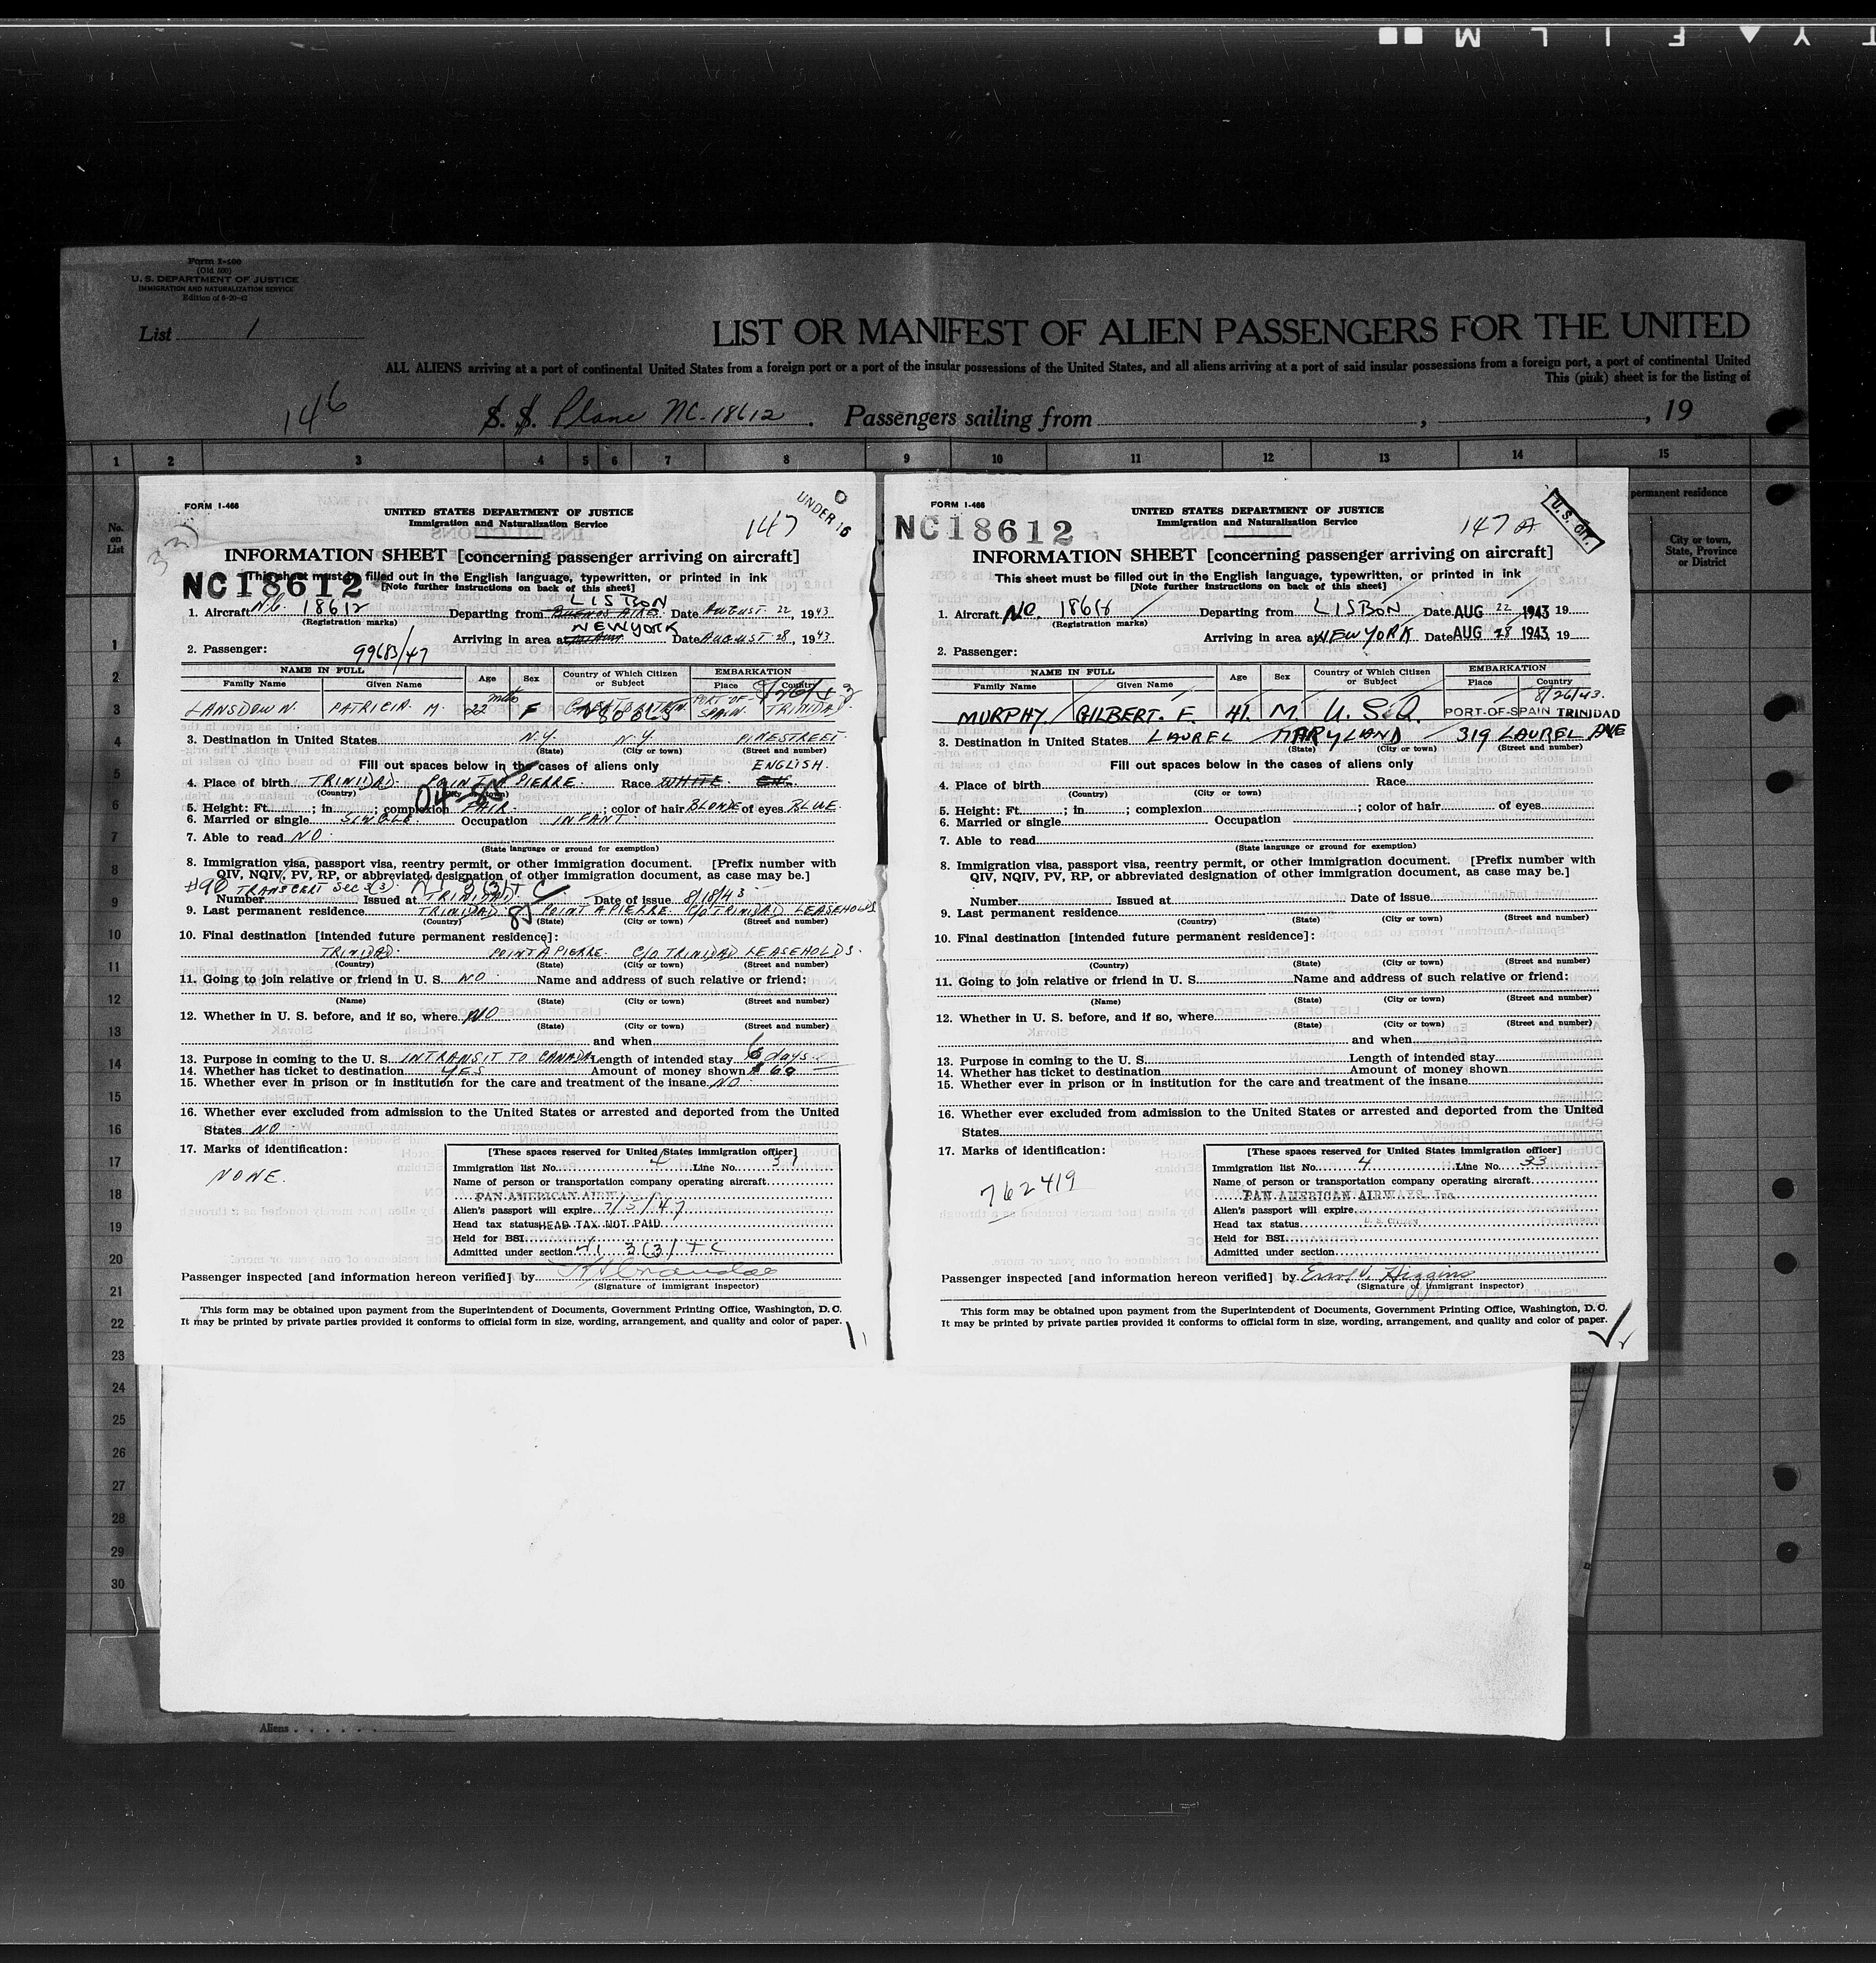 Form I-100
(Old 500)
U. S. DEPARTMENT OF JUSTICE
IMMIGRATION AND NATURALIZATION SERVICE
Edition of 6-20-42
List 1
LIST OR MANIFEST OF ALIEN PASSENGERS FOR THE UNITED
ALL ALIENS arriving at a port of continental United States from a foreign port or a port of the insular possessions of the United States, and all aliens arriving at a port of said insular possessions from a foreign port, a port of continental United
This (pink) sheet is for the listing of
146 S. S. Plane NC-18612. Passengers sailing from , , 19
1 2 3 4 5 6 7 8 9 10 11 12 13 14 15
No. on List
permanent residence
City or town, State, Province or District
FORM I-466
UNITED STATES DEPARTMENT OF JUSTICE
Immigration and Naturalization Service
UNDER 16
147
INFORMATION SHEET [concerning passenger arriving on aircraft]
NC18612
This sheet must be filled out in the English language, typewritten, or printed in ink
[Note further instructions on back of this sheet]
1. Aircraft N.C. 18612 Departing from BUENOS AIRES LISBON Date AUGUST 22, 1943
(Registration marks)
Arriving in area at NEW YORK Date AUGUST 28, 1943
2. Passenger: 99683/47
NAME IN FULL Age Sex Country of Which Citizen or Subject EMBARKATION
Family Name Given Name Place Country
LANSDOWN. PATRICIA. M. 22 mths F GREAT BRITAIN. PORT-OF-SPAIN. TRINIDAD
3. Destination in United States N.Y. N.Y. PINESTREET
(State) (City or town) (Street and number)
Fill out spaces below in the cases of aliens only ENGLISH.
4. Place of birth TRINIDAD. Race WHITE ENG.
(Country) (City or town)
5. Height: Ft. ; in ; complexion FAIR. ; color of hair BLONDE of eyes BLUE.
6. Married or single SINGLE. Occupation INFANT.
7. Able to read NO.
(State language or ground for exemption)
8. Immigration visa, passport visa, reentry permit, or other immigration document. [Prefix number with
QIV, NQIV, PV, RP, or abbreviated designation of other immigration document, as case may be.]
#90 TRANSCERT Sec 3(3). 3(3) T C
Number Issued at TRINIDAD. Date of issue 8/18/43
9. Last permanent residence TRINIDAD. POINT A PIERRE. C/O TRINIDAD LEASEHOLDS
(Country) (State) (City or town) (Street and number)
10. Final destination [intended future permanent residence]:
TRINIDAD. POINT A PIERRE. C/O TRINIDAD LEASEHOLDS.
(Country) (State) (City or town) (Street and number)
11. Going to join relative or friend in U. S. NO Name and address of such relative or friend:
(Name) (State) (City or town) (Street and number)
12. Whether in U. S. before, and if so, where NO
(State) (City or town) (Street and number)
and when
13. Purpose in coming to the U. S. INTRANSIT TO CANADA. Length of intended stay 6 days
14. Whether has ticket to destination YES Amount of money shown $60
15. Whether ever in prison or in institution for the care and treatment of the insane NO.
16. Whether ever excluded from admission to the United States or arrested and deported from the United
States NO.
17. Marks of identification:
NONE.
[These spaces reserved for United States immigration officer]
Immigration list No. 4 Line No. 31
Name of person or transportation company operating aircraft
PAN AMERICAN AIRW
Alien's passport will expire 2/3/47
Head tax status HEAD TAX NOT PAID
Held for BSI
Admitted under section 3(3) T C
Passenger inspected [and information hereon verified] by
(Signature of immigrant inspector)
This form may be obtained upon payment from the Superintendent of Documents, Government Printing Office, Washington, D. C.
It may be printed by private parties provided it conforms to official form in size, wording, arrangement, and quality and color of paper.
FORM I-466
NC18612
UNITED STATES DEPARTMENT OF JUSTICE
Immigration and Naturalization Service
147 A
U.S. CIT.
INFORMATION SHEET [concerning passenger arriving on aircraft]
This sheet must be filled out in the English language, typewritten, or printed in ink
[Note further instructions on back of this sheet]
1. Aircraft NC. Departing from LISBON Date AUG 22 1943 19
(Registration marks)
Arriving in area at NEW YORK Date AUG 28 1943 19
2. Passenger:
NAME IN FULL Age Sex Country of Which Citizen or Subject EMBARKATION
Family Name Given Name Place Country
8/26/43.
MURPHY. GILBERT. F. 41. M. U.S.A. PORT-OF-SPAIN TRINIDAD
3. Destination in United States LAUREL MARYLAND 319 LAUREL AVE
(State) (City or town) (Street and number)
Fill out spaces below in the cases of aliens only
4. Place of birth Race
(Country) (City or town)
5. Height: Ft. ; in ; complexion ; color of hair of eyes
6. Married or single Occupation
7. Able to read
(State language or ground for exemption)
8. Immigration visa, passport visa, reentry permit, or other immigration document. [Prefix number with
QIV, NQIV, PV, RP, or abbreviated designation of other immigration document, as case may be.]
Number Issued at Date of issue
9. Last permanent residence
(Country) (State) (City or town) (Street and number)
10. Final destination [intended future permanent residence]:
(Country) (State) (City or town) (Street and number)
11. Going to join relative or friend in U. S. Name and address of such relative or friend:
(Name) (State) (City or town) (Street and number)
12. Whether in U. S. before, and if so, where
(State) (City or town) (Street and number)
and when
13. Purpose in coming to the U. S. Length of intended stay
14. Whether has ticket to destination Amount of money shown
15. Whether ever in prison or in institution for the care and treatment of the insane
16. Whether ever excluded from admission to the United States or arrested and deported from the United
States
17. Marks of identification:
762419
[These spaces reserved for United States immigration officer]
Immigration list No. 4 Line No. 33
Name of person or transportation company operating aircraft
PAN AMERICAN AIRWAYS, Inc.
Alien's passport will expire
Head tax status
Held for BSI
Admitted under section
Passenger inspected [and information hereon verified] by Higgins
(Signature of immigrant inspector)
This form may be obtained upon payment from the Superintendent of Documents, Government Printing Office, Washington, D. C.
It may be printed by private parties provided it conforms to official form in size, wording, arrangement, and quality and color of paper.
1
2
3
4
5
6
7
8
9
10
11
12
13
14
15
16
17
18
19
20
21
22
23
24
25
26
27
28
29
30
Aliens